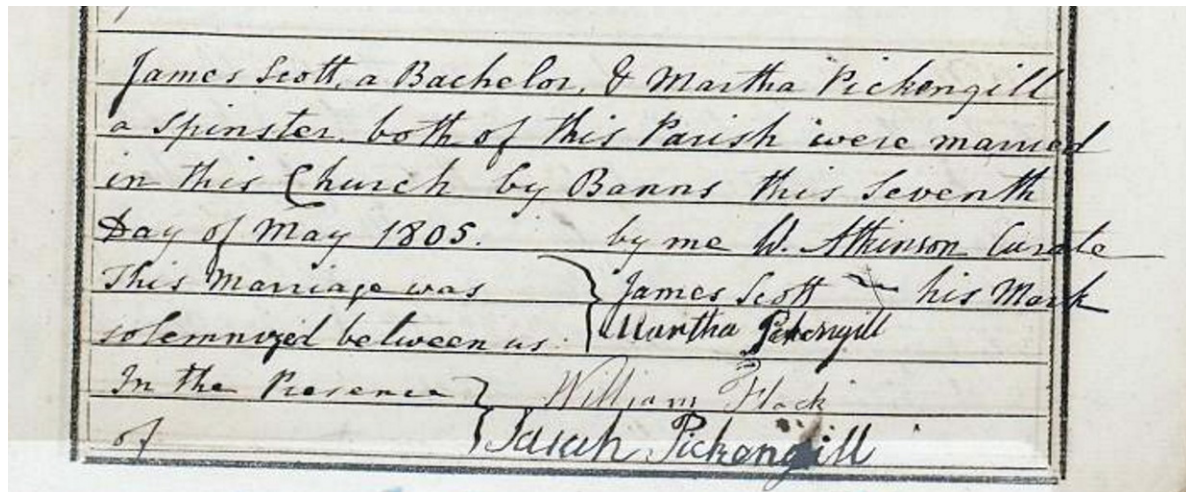 James Scott, a Bachelor, & Martha Pickengill
a Spinster, both of this Parish were married
in this Church by Banns this Seventh
Day of May 1805. by me W. Atkinson Curate
This Marriage was } James Scott his Mark
solemnized between us } Martha Pickengill
In the Presence } William Flock
of } Sarah Pickengill